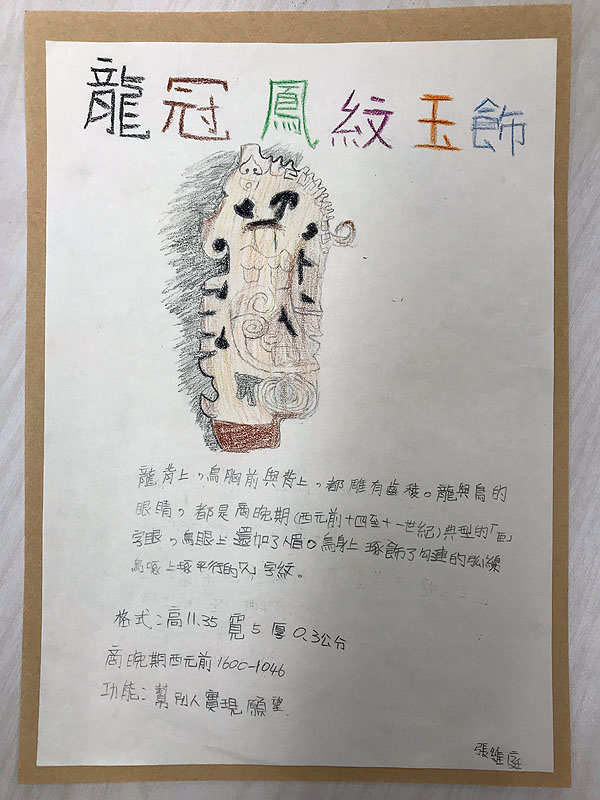 龍冠鳳紋玉飾
龍背上，鳥胸前與背上，都雕有齒稜。龍與鳥的
眼睛，都是商晚期(西元前十四至十一世紀)典型的「臣」
字眼，鳥眼上還加了眉。鳥身上琢飾了勾連的弧線
鳥琢上琢平行的「人」字紋。
格式：高11.35 寬5 厚0.3公分
商晚期西元前1600-1046
功能：幫別人實現願望.
張維庭